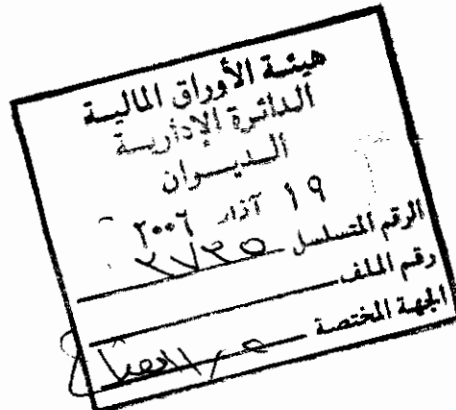 هيئة الأوراق المالية
الدائرة الإدارية
الديوان
١٩ آذار ٢٠٠٦
الرقم المتسلسل ٢٧٣٥
رقم الملف
الجهة المختصة